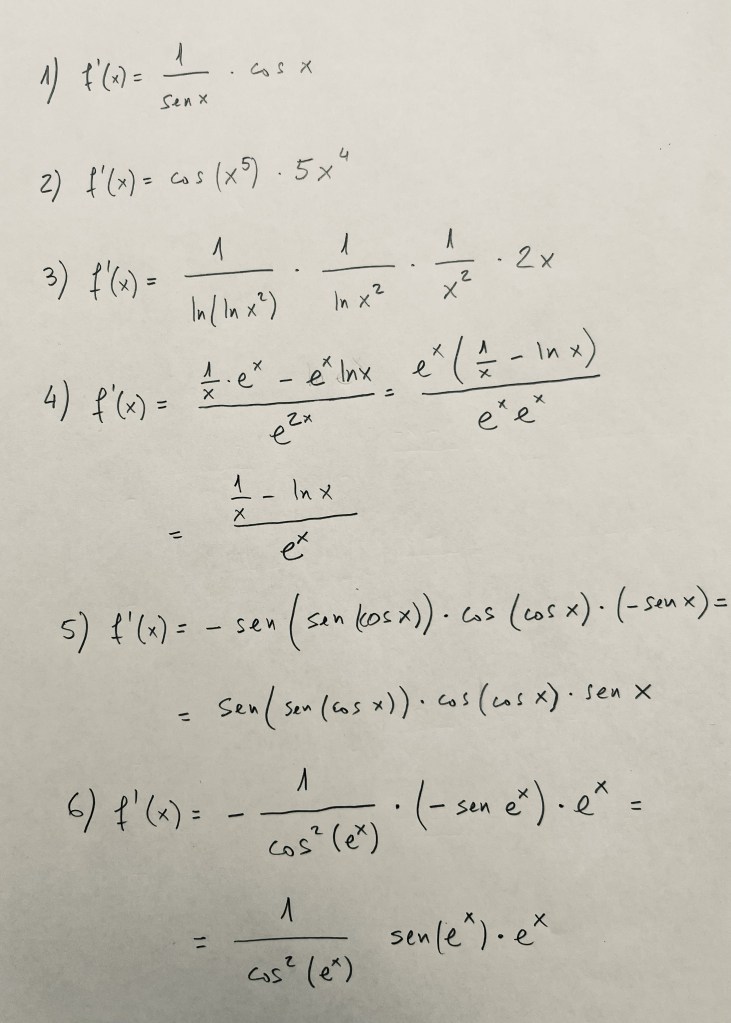 1) f'(x) = 1/sen x · cos x
2) f'(x) = cos (x⁵) · 5x⁴
3) f'(x) = 1/ln(ln x²) · 1/ln x² · 1/x² · 2x
4) f'(x) = (1/x · eˣ - eˣ ln x)/e²ˣ = eˣ (1/x - ln x)/eˣ eˣ
= (1/x - ln x)/eˣ
5) f'(x) = - sen (sen (cos x)) · cos (cos x) · (-sen x) =
= sen (sen (cos x)) · cos (cos x) · sen x
6) f'(x) = - 1/cos² (eˣ) · (- sen eˣ) · eˣ =
= 1/cos² (eˣ) sen (eˣ) · eˣ